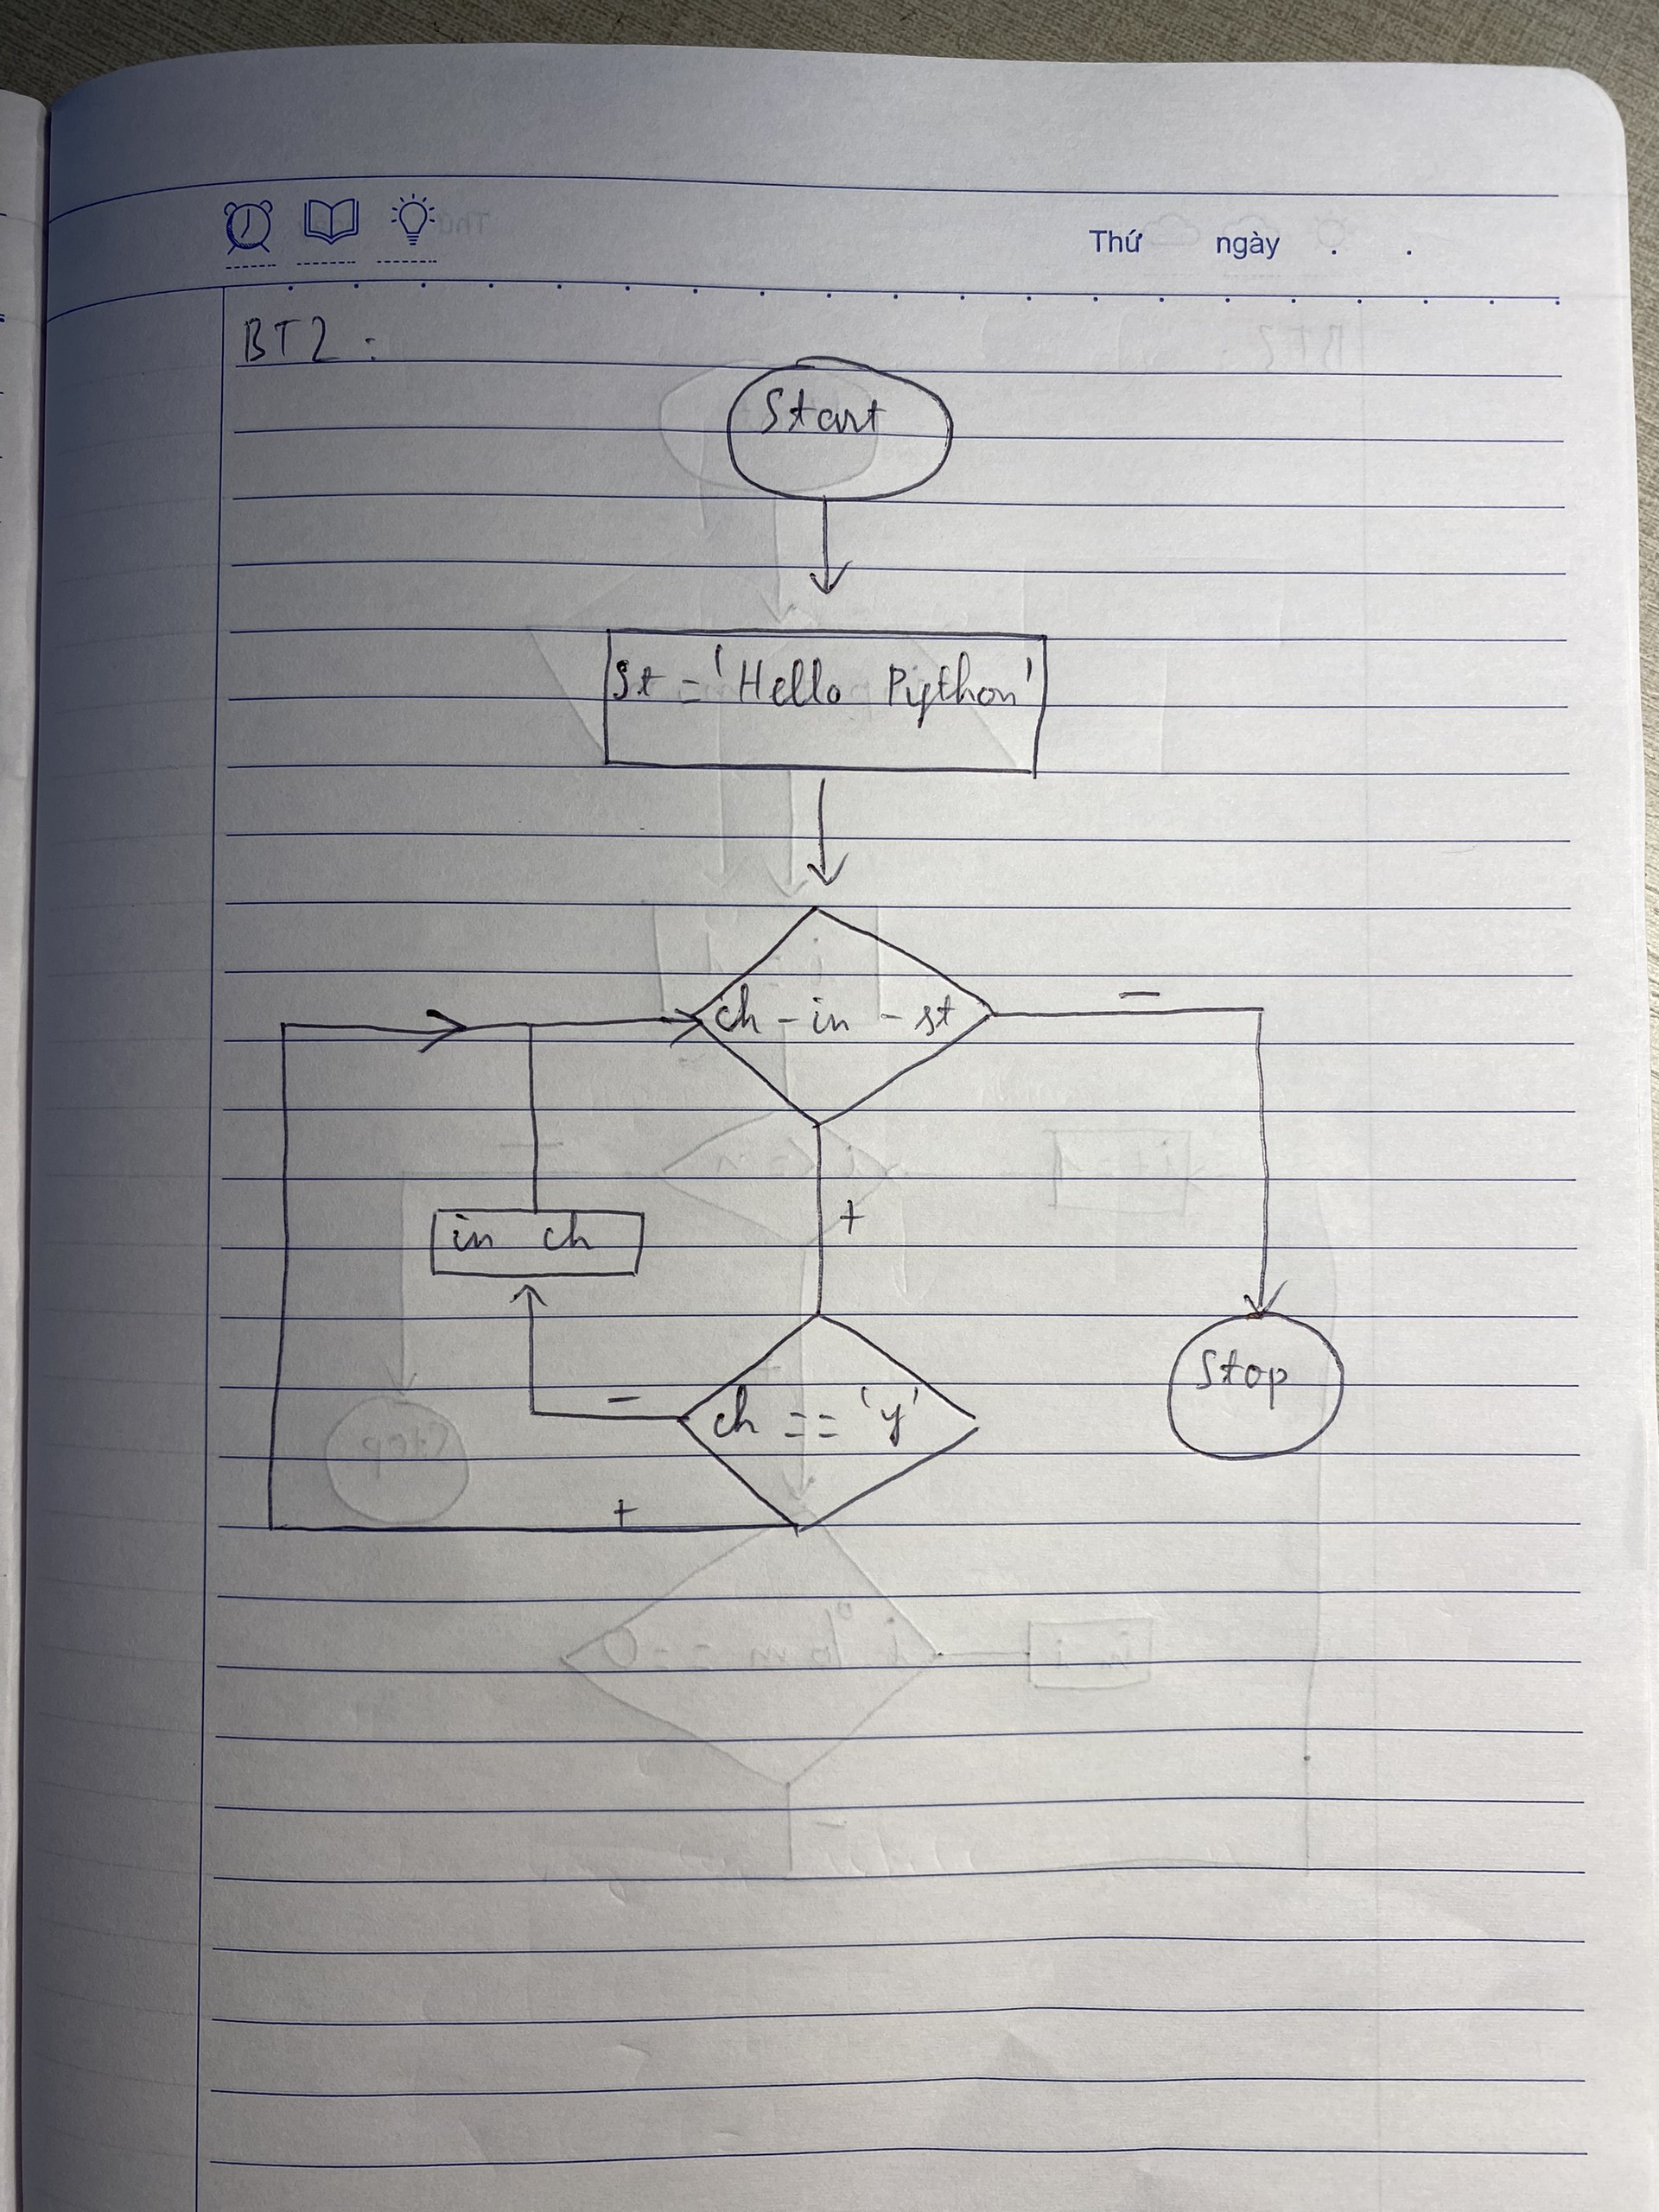 Thứ ngày . .
BT2 :
Start
St = 'Hello Python'
ch - in - st
-
+
in ch
ch == 'y'
-
Stop
+